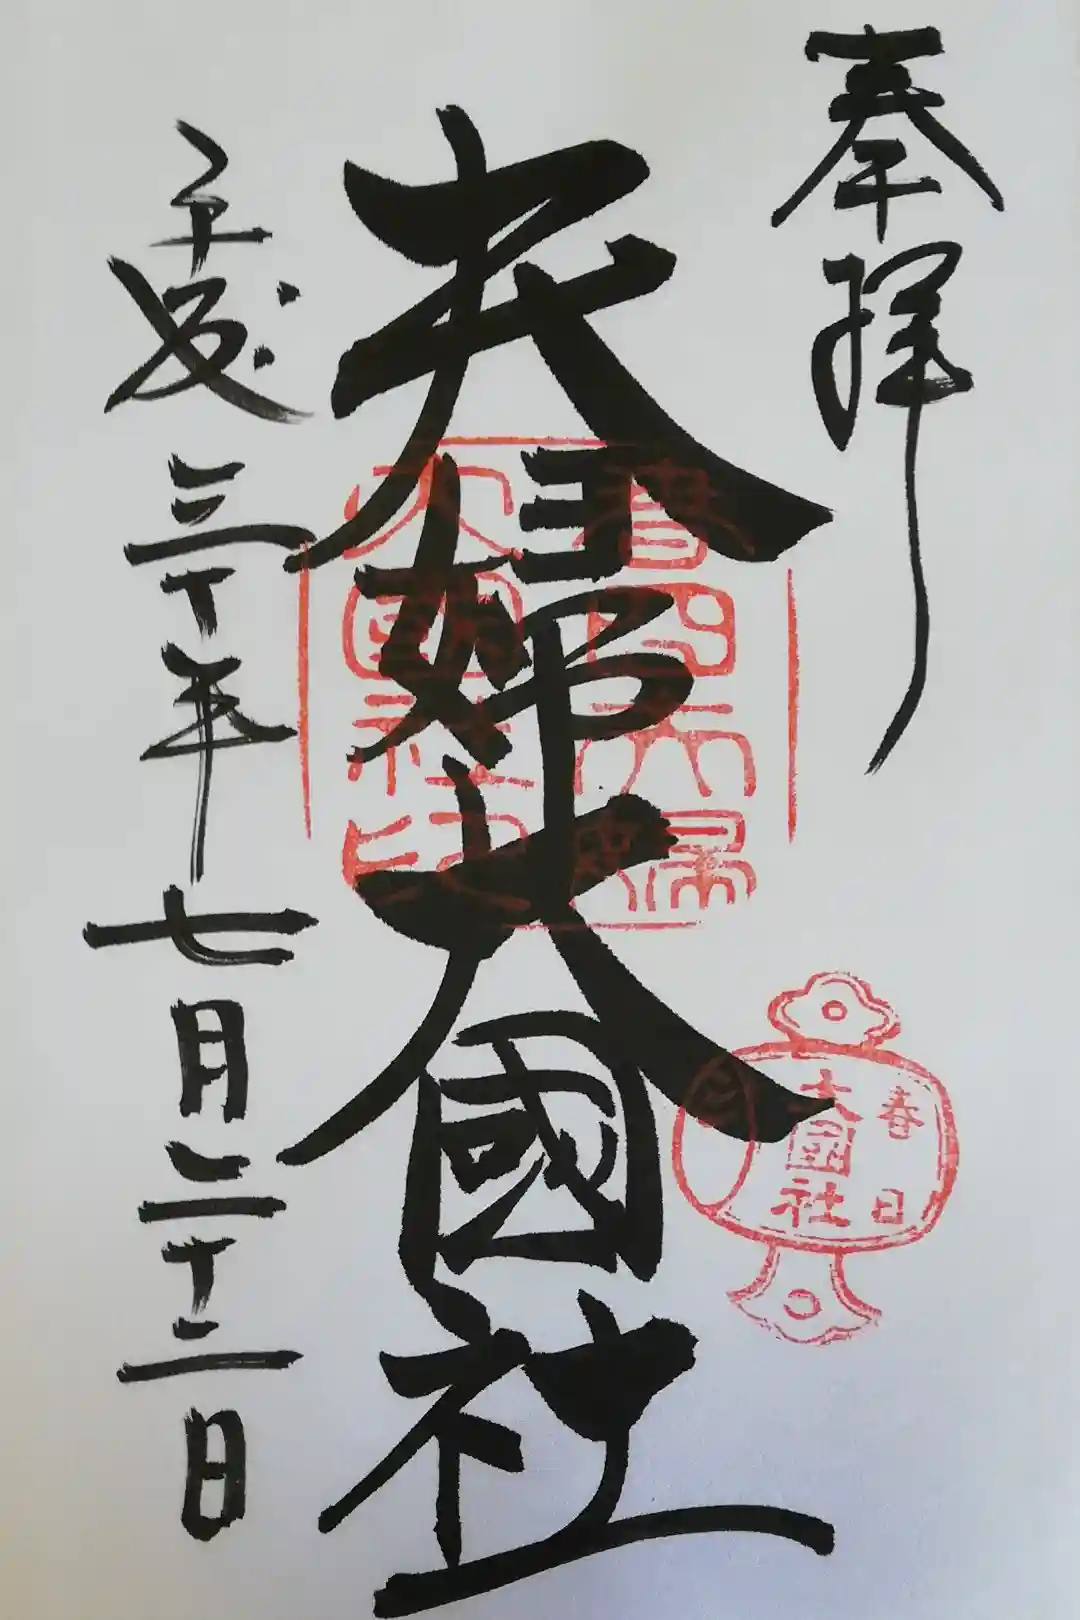 奉拝
夫婦大國社
平成三十年七月二十二日
春日夫婦
大國社印
春日
大國社